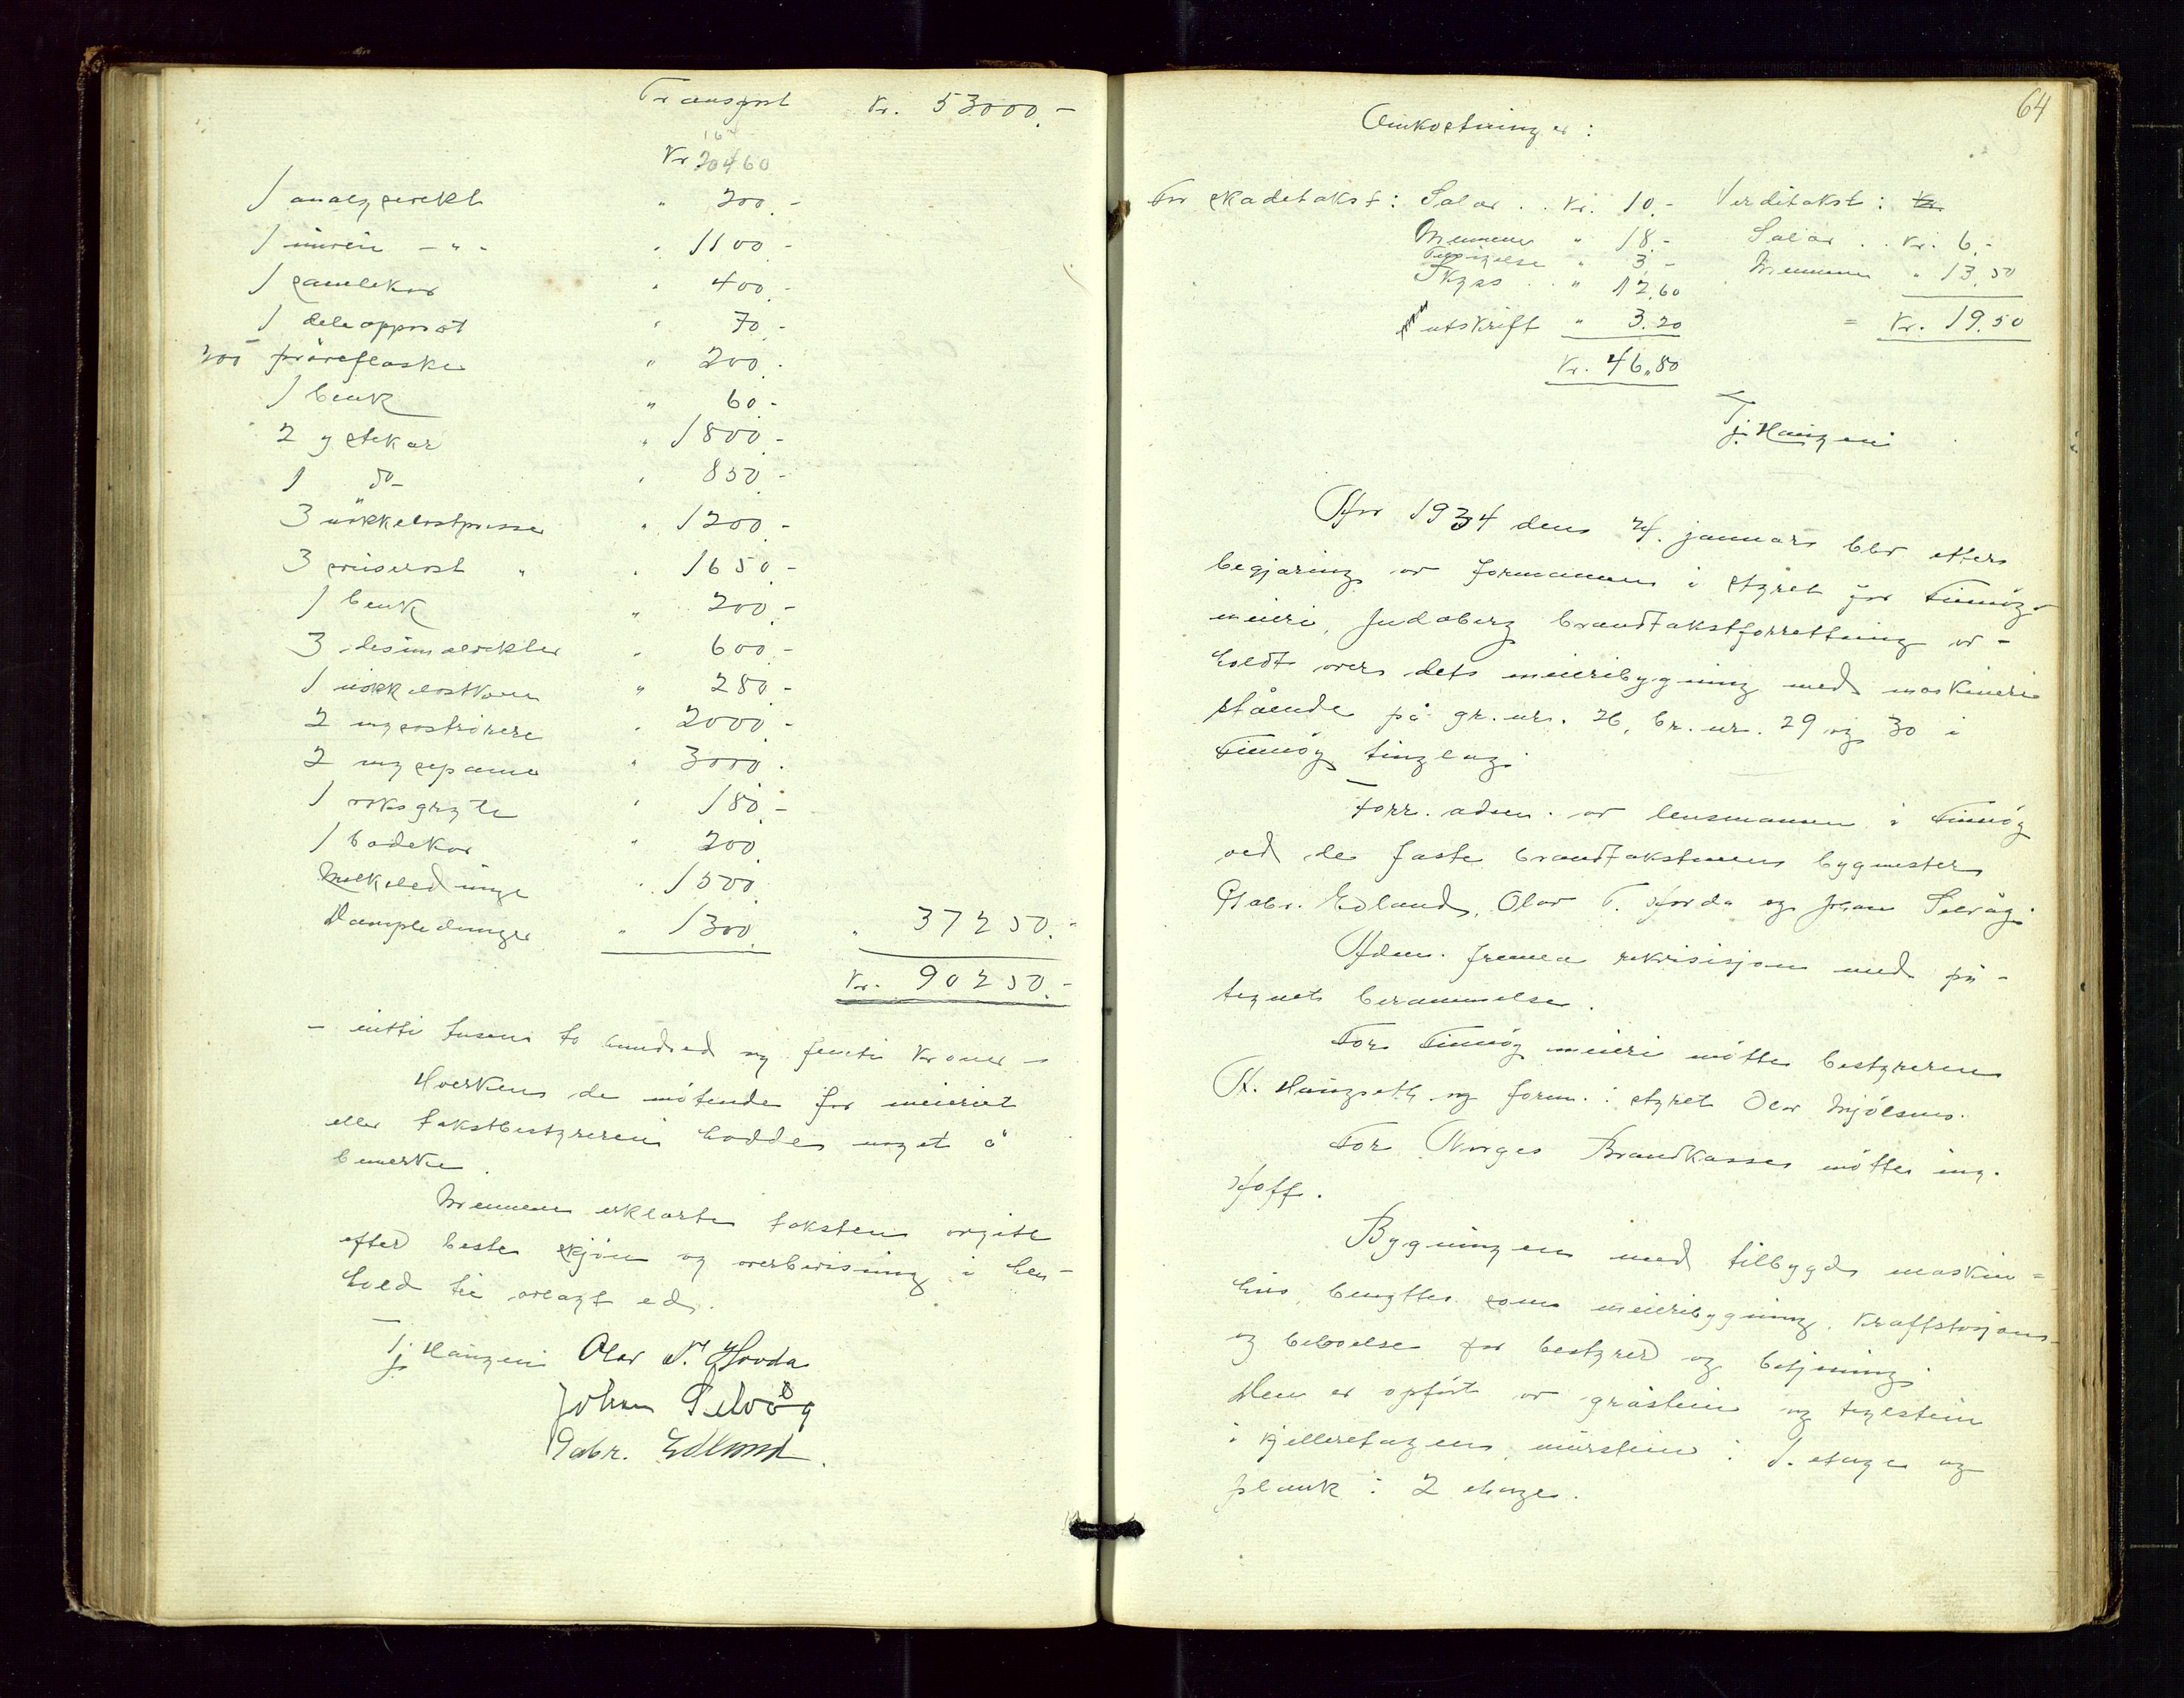 Transport Kr. 53000.-
16
Kr 20460
1 analysevekt " 200.-
1 - " - " 1100.-
1 samlekar " 400.-
1 deleapparat " 70.-
200 prøveflasker " 200.-
1 benk " 60.-
2 ystekar " 1800.-
1 do - " 850.-
3 nökkelostpresser " 1200.-
3 " " 1650.-
1 benk " 200.-
3 desimalvekter " 600.-
1 nökkelostkvern " 280.-
2 mysoströrere " 2000.-
2 mysepanner " 3000.-
1 voksgryte " 180.-
1 badekar " 200
Melkeledninger " 1500.
Dampledninger " 1300. " 37250.-
Kr. 90250.-
- nitti tusen to hundred og femti kroner -
Hverken de mötende for meieriet
eller takstbestyreren hadde noget å
bemerke.
Mennene erklærte taksten avgitt
efter beste skjön og overbevisning i hen-
hold til avlagt ed.
Tj. Haugen Olav T. Hovda
Johan Selvåg
Gabr. Edland.
64
Omkostninger:
For skadetakst: Salar .. Kr. 10.- Verditakst: Kr
Mennene " 18.- Salar .. Kr. 6.-
" 3.- Mennene " 13.50
Skyss .. " 12,60
utskrift " 3.20 = Kr. 19.50
Kr. 46,80
Tj. Haugen
År 1934 den 24. januar blev efter
begjæring av formannen i styret for Finnöy
meieri, Judaberg branntakstforretning av-
holdt over dets meieribygning med maskineri
stående på gr. nr. 26, br. nr. 29 og 30 i
Finnöy tinglag.
Forr. adm. av lensmannen i Finnöy
ved de faste branntakstmenn bygmester
Gabr. Edland, Olav T. Hovda og Johan Selvåg.
Adm. fremla rekvisisjon med på-
tegnet berammelse.
For Finnöy meieri mötte bestyreren
A. Haugseth og form. i styret Olav Mjölsnes.
For Norges Brandkasse mötte ing.
Hoff.
Bygningen med tilbygde maskin-
hus benyttes som meieribygning, kraftstasjon
og beboelse for bestyrer og betjening.
Den er opfört av gråstein og teglstein
i kjelleretagen, murstein i 1. etage og
plank i 2 etage.